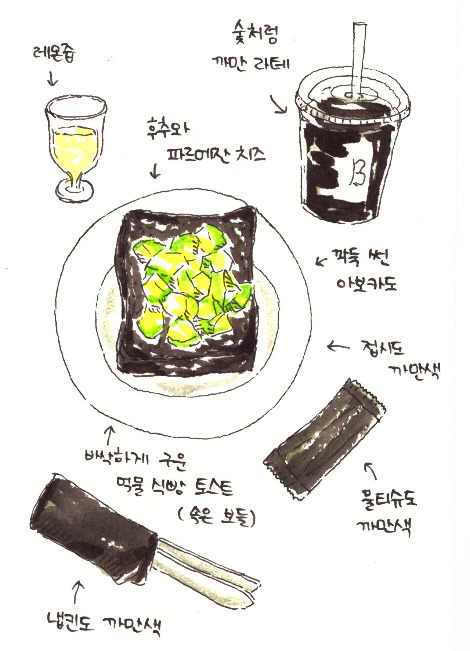 레몬즙
숯처럼
까만 라테
B
후추와
파르메잔 치즈
깍둑 썬
아보카도
접시도
까만색
바삭하게 구운
먹물 식빵 토스트
(속은 보들)
물티슈도
까만색
냅킨도 까만색